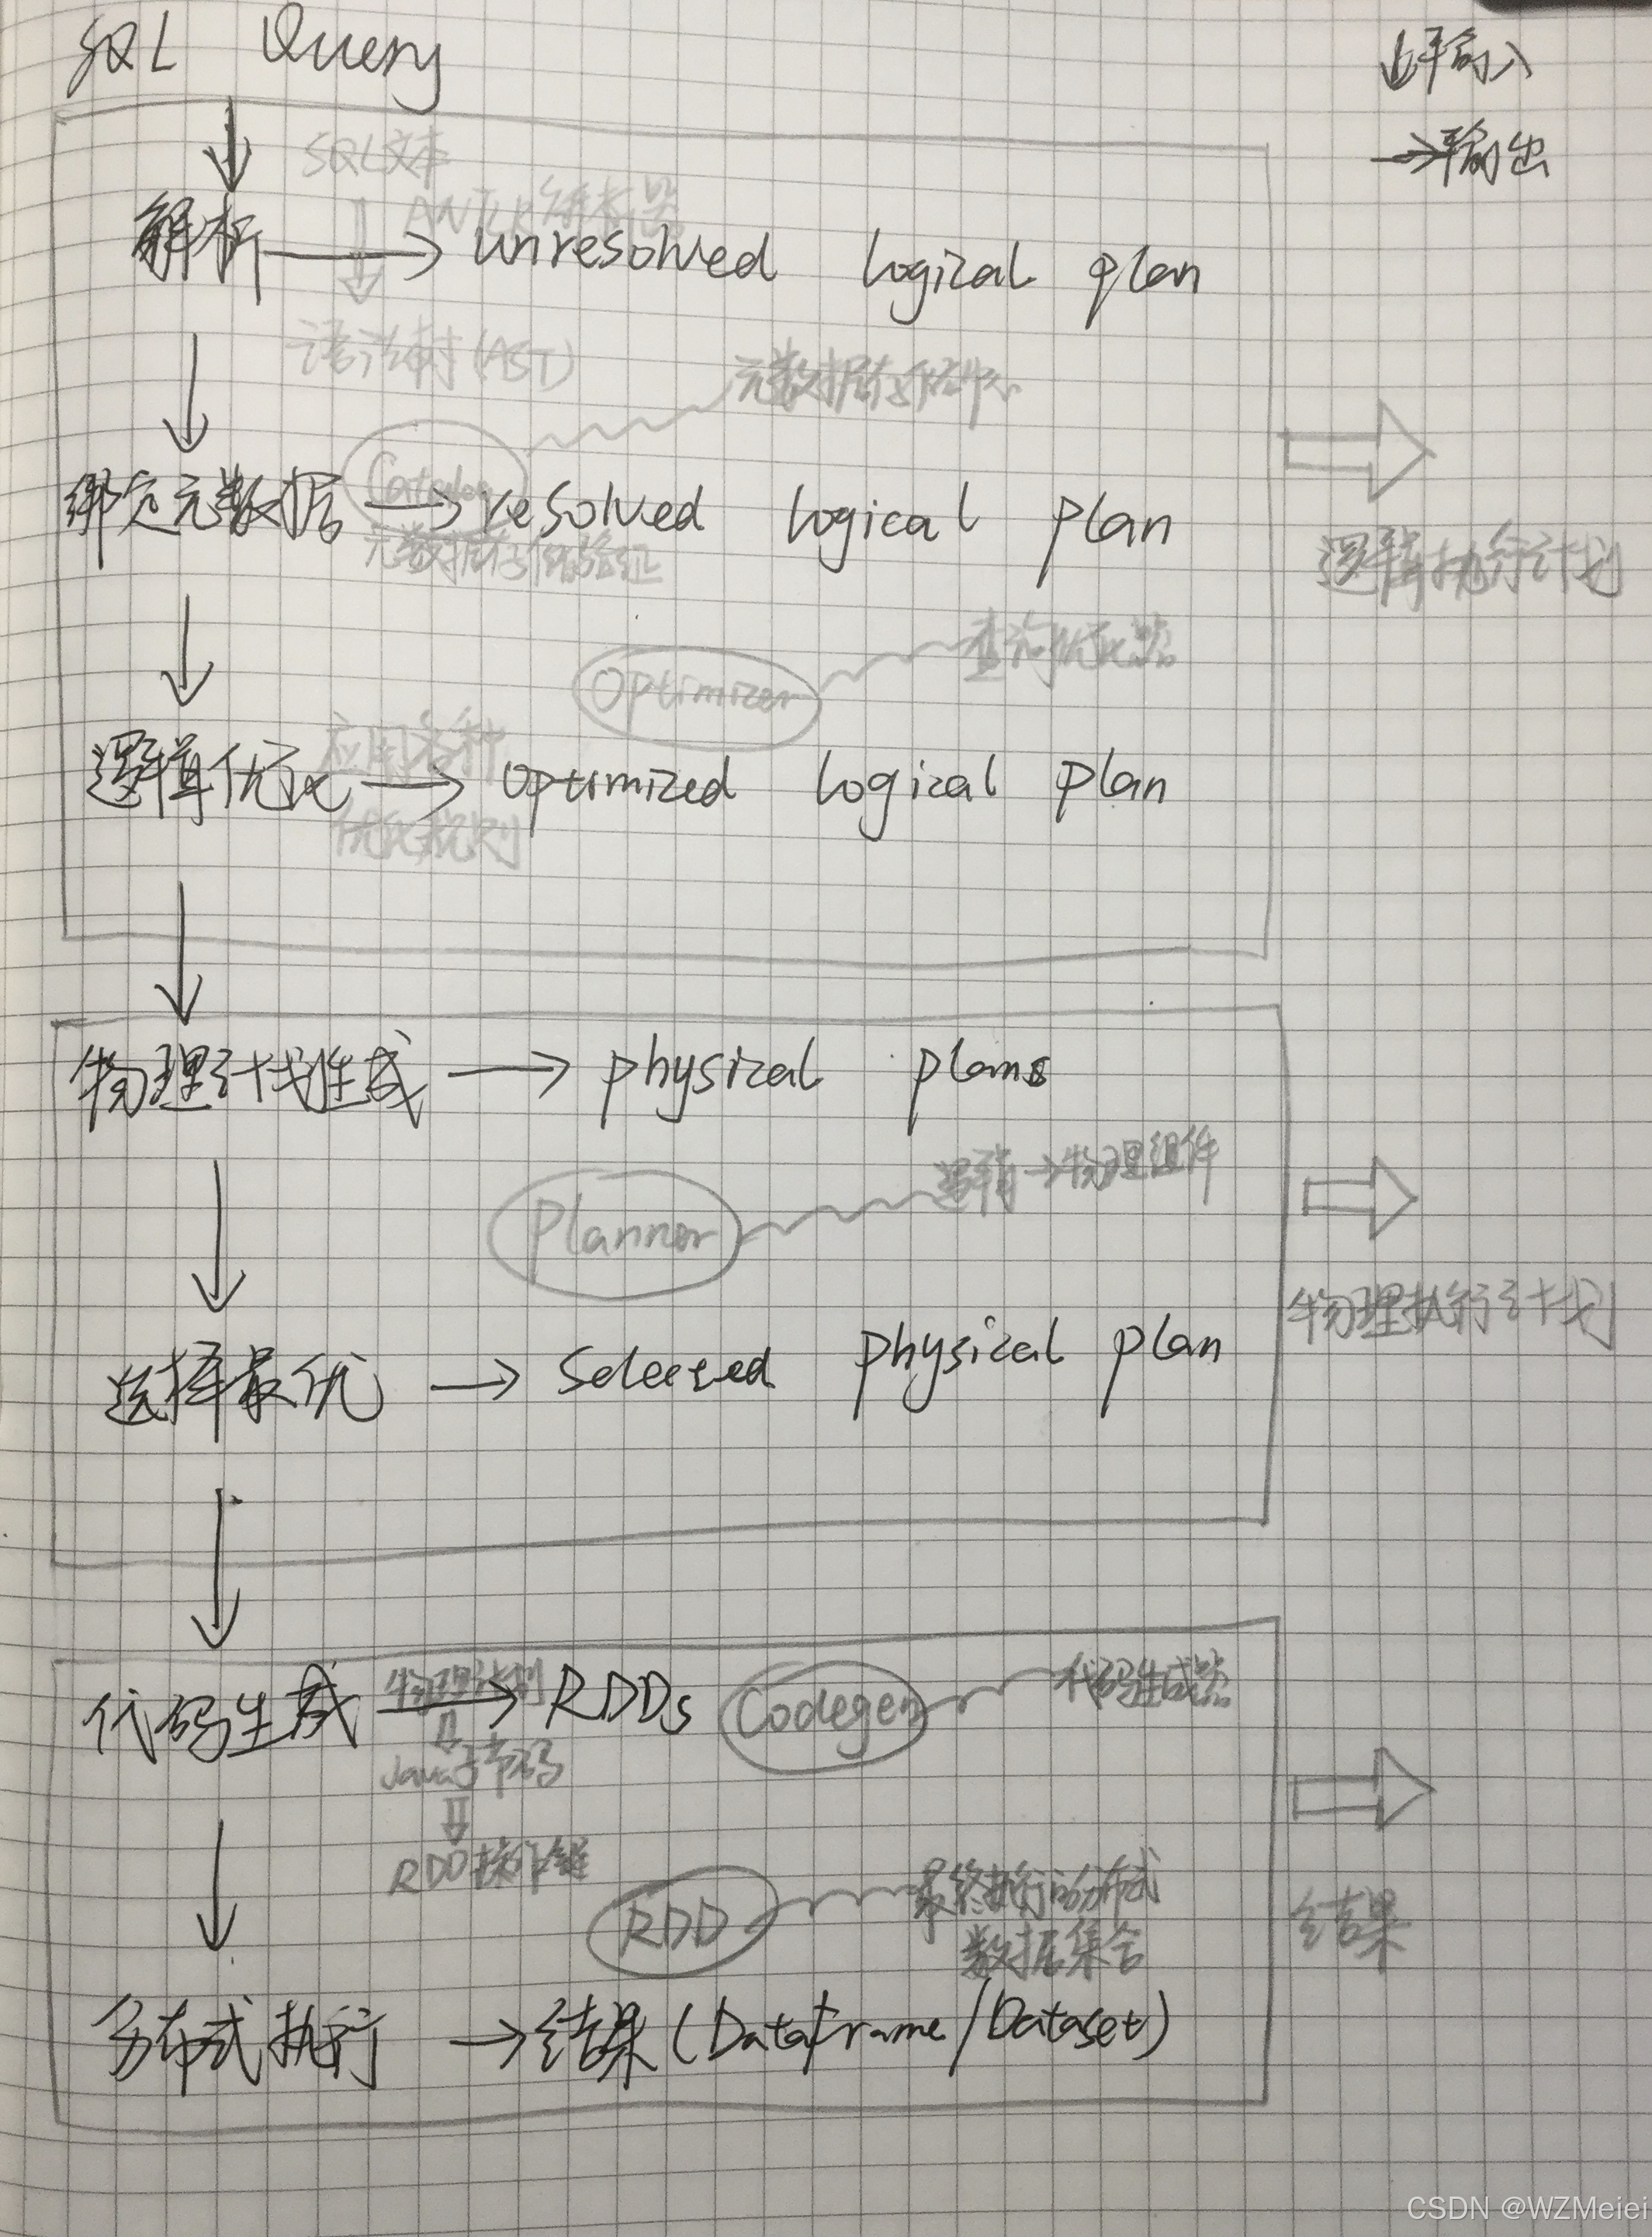 SQL Query
↓输入
→输出
SQL文本
ANTLR解析器
解析 → unresolved logical plan
语法树(AST)
元数据存储中心
Catalog
绑定元数据 → resolved logical plan
元数据存储验证
逻辑执行计划
查询优化器
Optimizer
应用各种
逻辑优化 → optimized logical plan
优化规则
物理计划生成 → physical plans
逻辑→物理组件
Planner
物理执行计划
选择最优 → Selected physical plan
物理计划
代码生成器
代码生成 → RDDs Codegen
Java字节码
RDD操作链
最终执行的分布式
RDD
数据集合
结果
分布式执行 → 结果(DataFrame/Dataset)
CSDN @WZMeiei